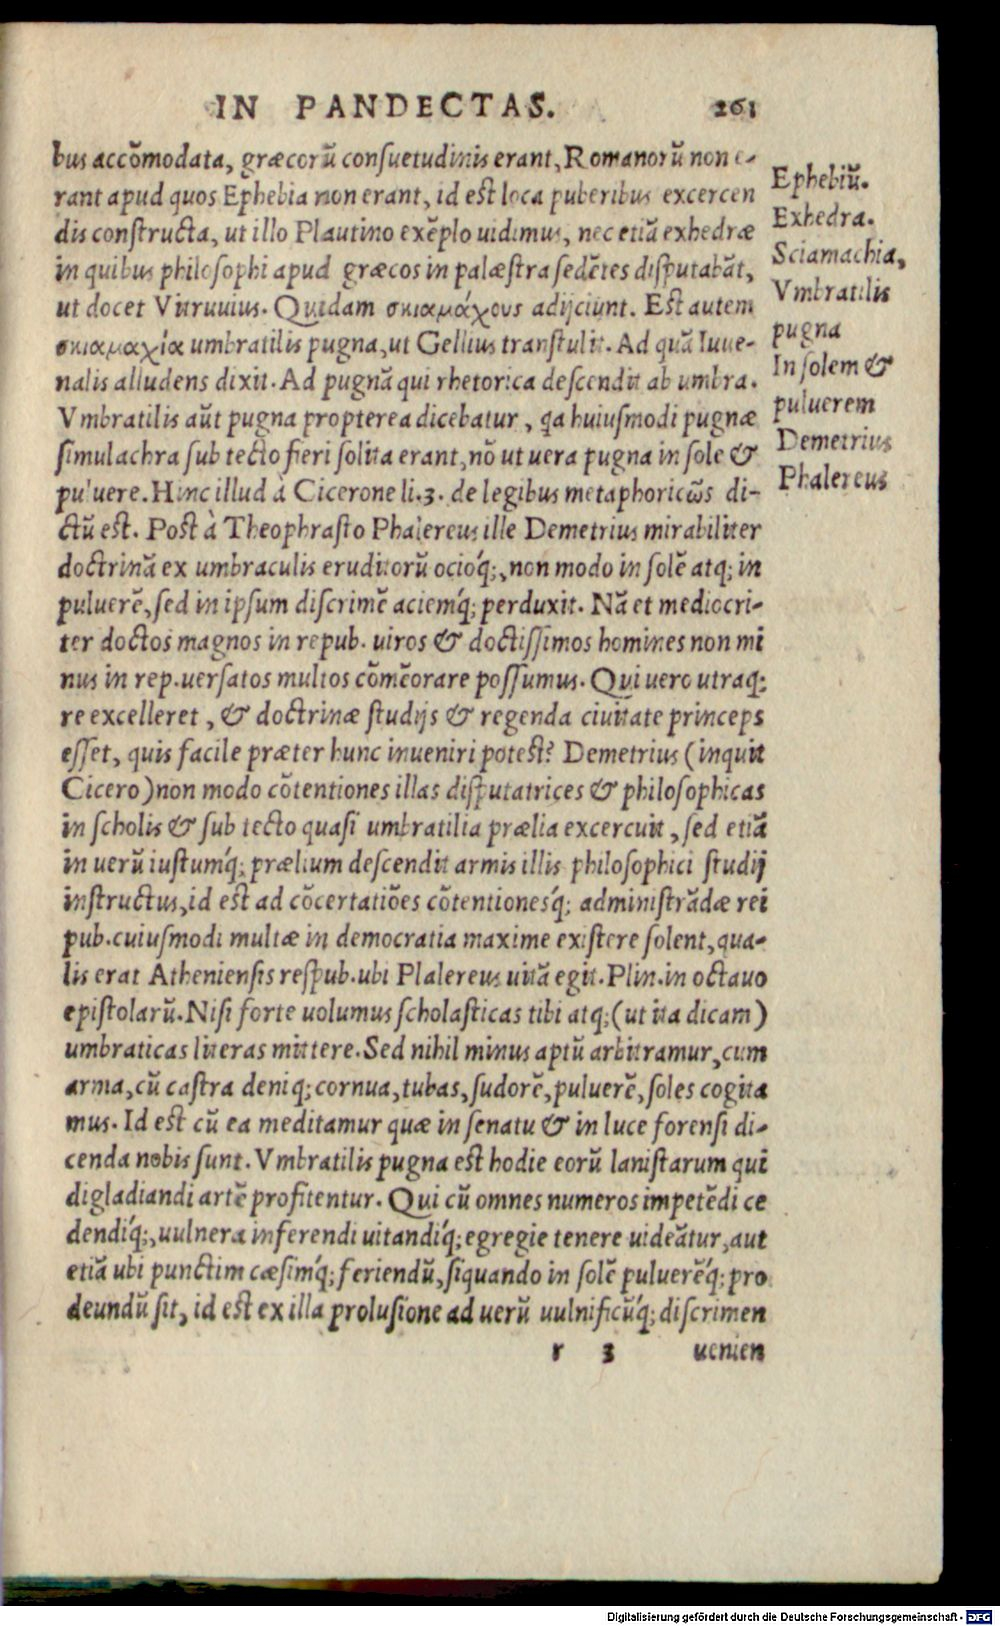 IN PANDECTAS. 261
bus accõmodata, græcorũ consuetudinis erant, Romanorũ non e-
rant apud quos Ephebia non erant, id est loca puberibus excercen
dis constructa, ut illo Plautino exẽplo uidimus, nec etiã exhedræ
in quibus philosophi apud græcos in palæstra sedẽtes disputabãt,
ut docet Vitruuius. Quidam σκιαμάχους adijciunt. Est autem
σκιαμαχία umbratilis pugna, ut Gellius transtulit. Ad quã Iuue-
nalis alludens dixit. Ad pugnã qui rhetorica descendit ab umbra.
Vmbratilis aũt pugna propterea dicebatur, qa huiusmodi pugnæ
simulachra sub tecto fieri solita erant, nõ ut uera pugna in sole &
puluere. Hinc illud à Cicerone li.3. de legibus metaphoricῶs di-
ctũ est. Post à Theophrasto Phalereus ille Demetrius mirabiliter
doctrinã ex umbraculis eruditorũ ocioq́;, non modo in solẽ atq; in
puluerẽ, sed in ipsum discrimẽ aciemq́; perduxit. Nã et mediocri-
ter doctos magnos in repub. uiros & doctissimos homines non mi
nus in rep. uersatos multos cõmẽorare possumus. Qui uero utraq;
re excelleret, & doctrinæ studijs & regenda ciuitate princeps
esset, quis facile præter hunc inueniri potest? Demetrius (inquit
Cicero) non modo cõtentiones illas disputatrices & philosophicas
in scholis & sub tecto quasi umbratilia prælia excercuit, sed etiã
in uerũ iustumq́; prælium descendit armis illis philosophici studij
instructus, id est ad cõcertatiões cõtentionesq́; administrãdæ rei
pub. cuiusmodi multæ in democratia maxime existere solent, qua-
lis erat Atheniensis respub. ubi Plalereus uitã egit. Plin. in octauo
epistolarũ. Nisi forte uolumus scholasticas tibi atq; (ut ita dicam)
umbraticas literas mittere. Sed nihil minus aptũ arbitramur, cum
arma, cũ castra deniq; cornua, tubas, sudorẽ, puluerẽ, soles cogita
mus. Id est cũ ea meditamur quæ in senatu & in luce forensi di-
cenda nobis sunt. Vmbratilis pugna est hodie eorũ lanistarum qui
digladiandi artẽ profitentur. Qui cũ omnes numeros impetẽdi ce
dendiq́;, uulnera inferendi uitandiq́; egregie tenere uideãtur, aut
etiã ubi punctim cæsimq́; feriendũ, siquando in solẽ puluerẽq́; pro
deundũ sit, id est ex illa prolusione ad uerũ uulnificũq́; discrimen
r 3 uenien
Ephebiũ.
Exhedra.
Sciamachia,
Vmbratilis
pugna
In solem &
puluerem
Demetrius
Phalereus
Digitalisierung gefördert durch die Deutsche Forschungsgemeinschaft - DFG